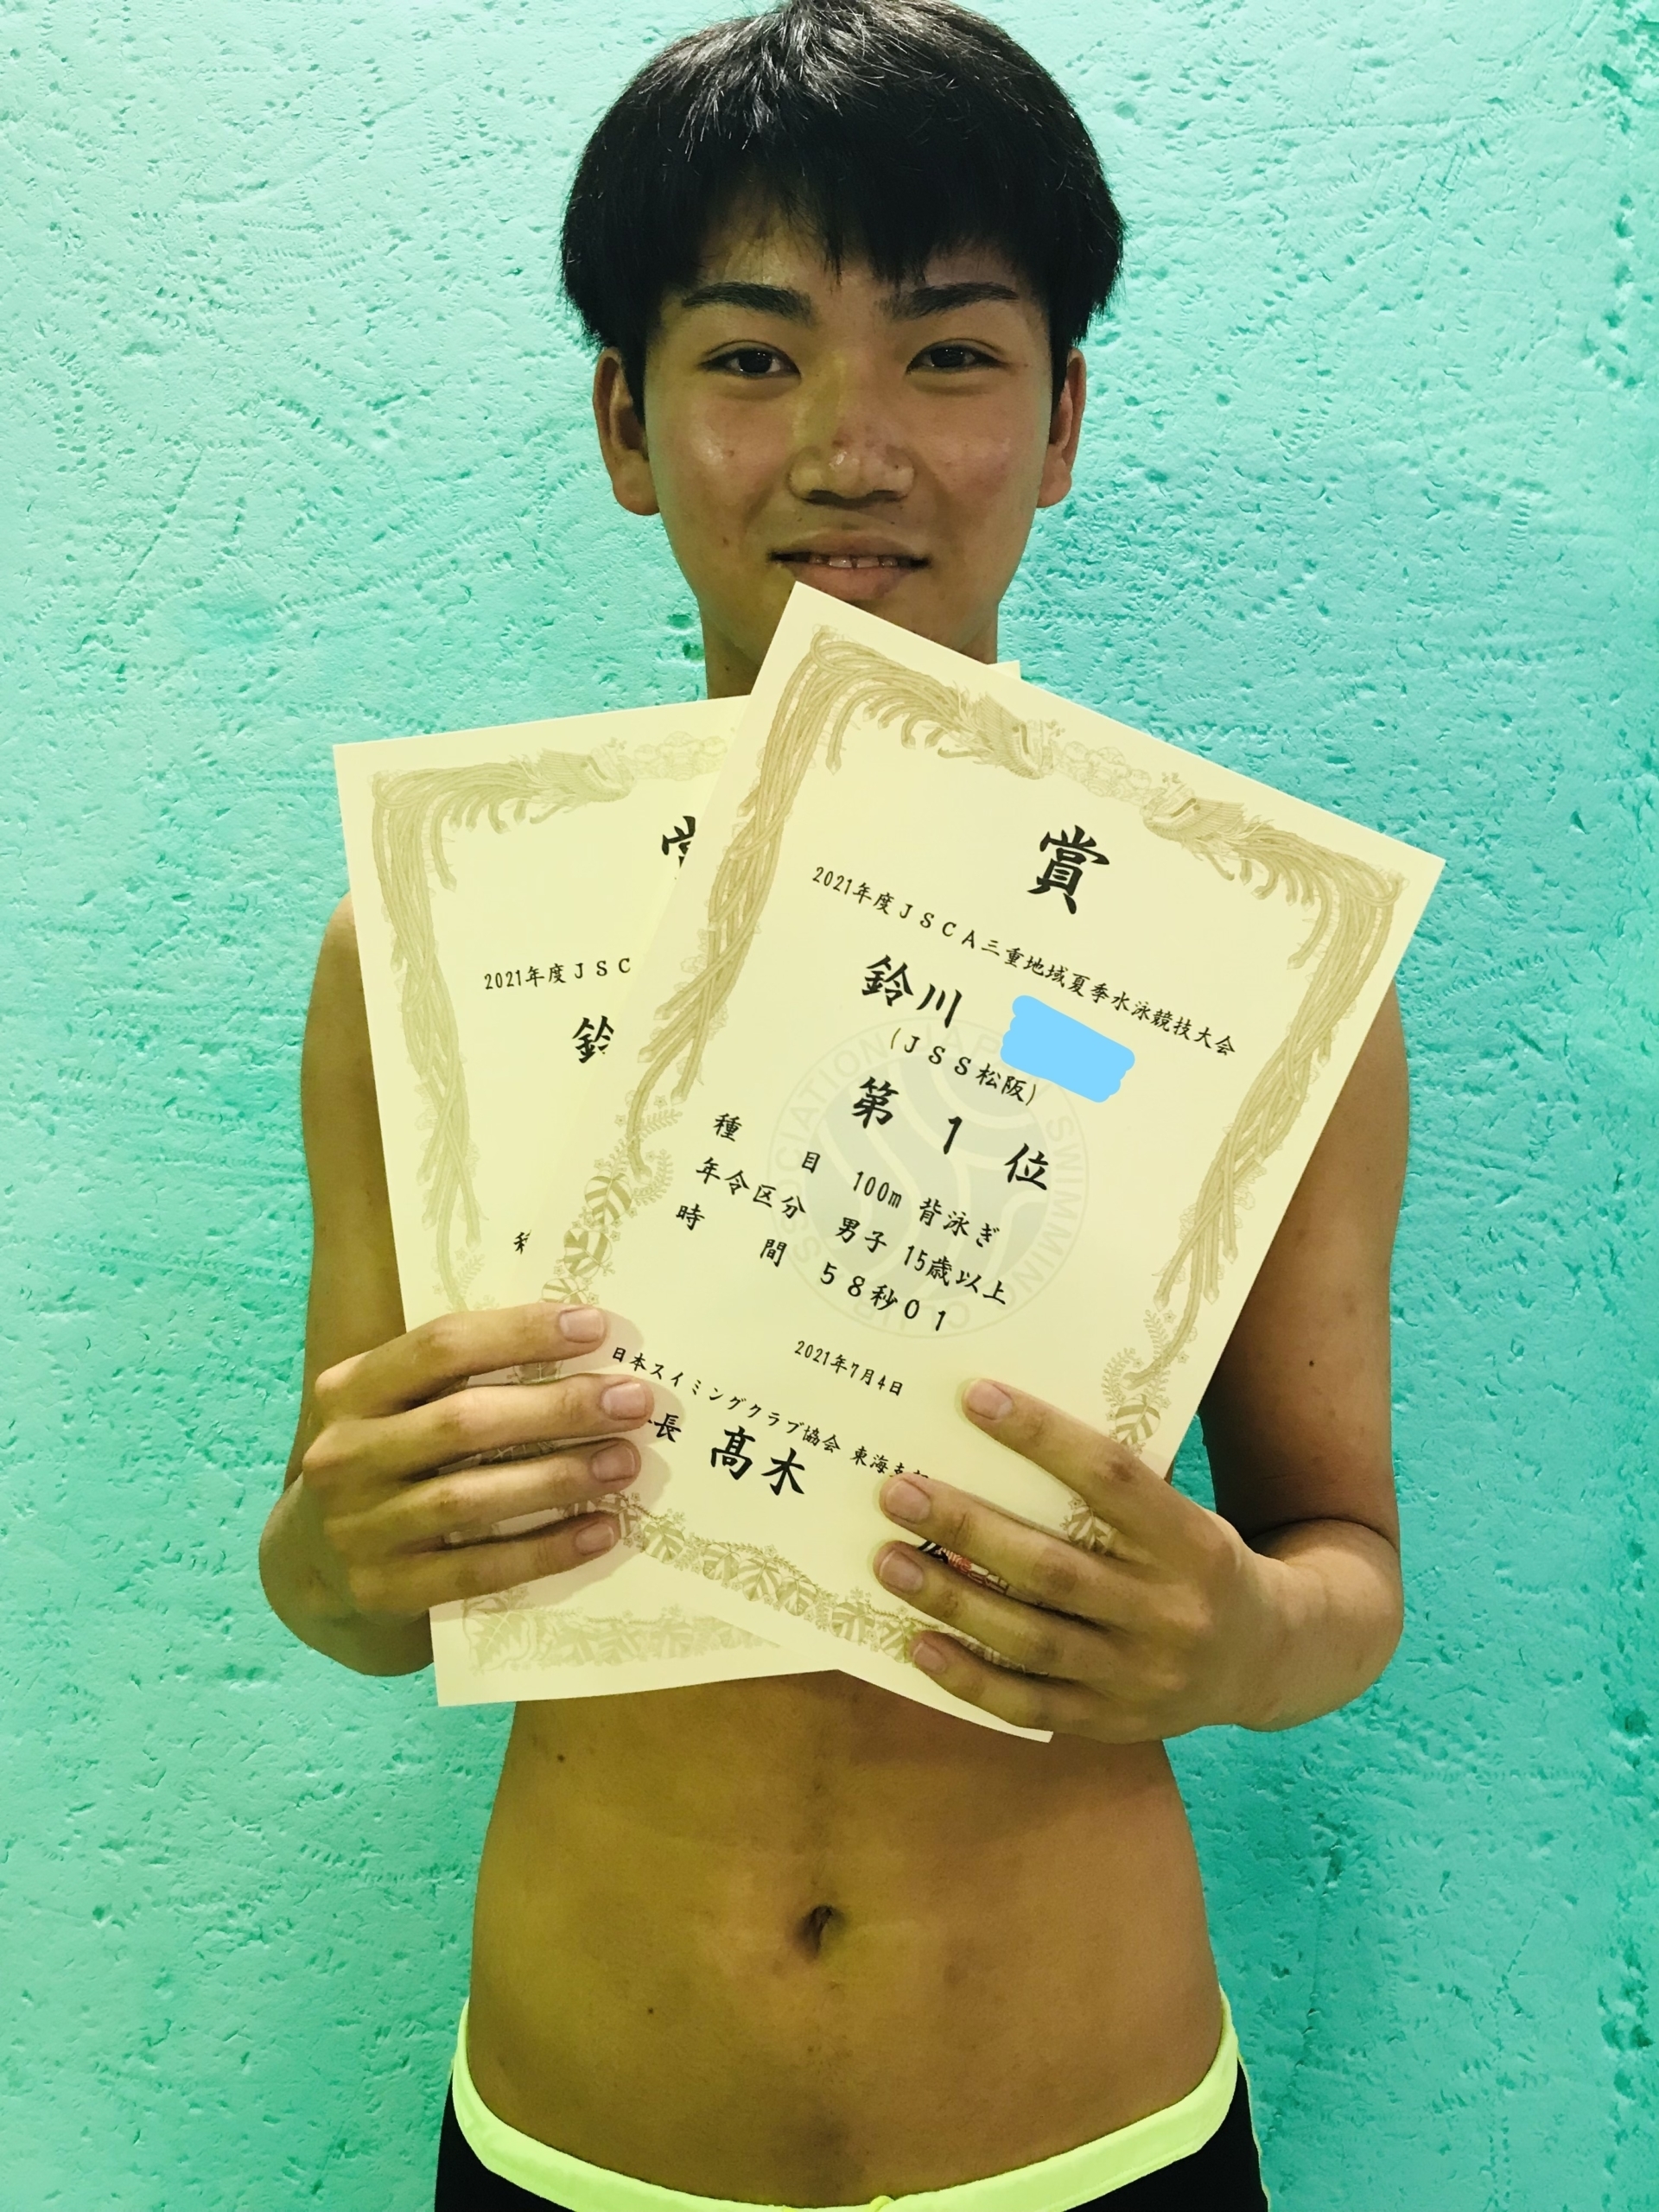 賞
2021年度JSC
鈴
賞
2021年度JSCA三重地域夏季水泳競技大会
鈴川
(JSS松阪)
第1位
種目 100m 背泳ぎ
年令区分 男子 15歳以上
時間 58秒01
2021年7月4日
日本スイミングクラブ協会 東海支部
長 髙木